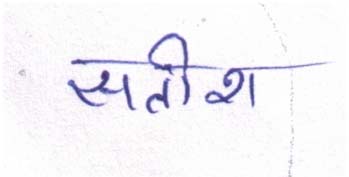 सतीश